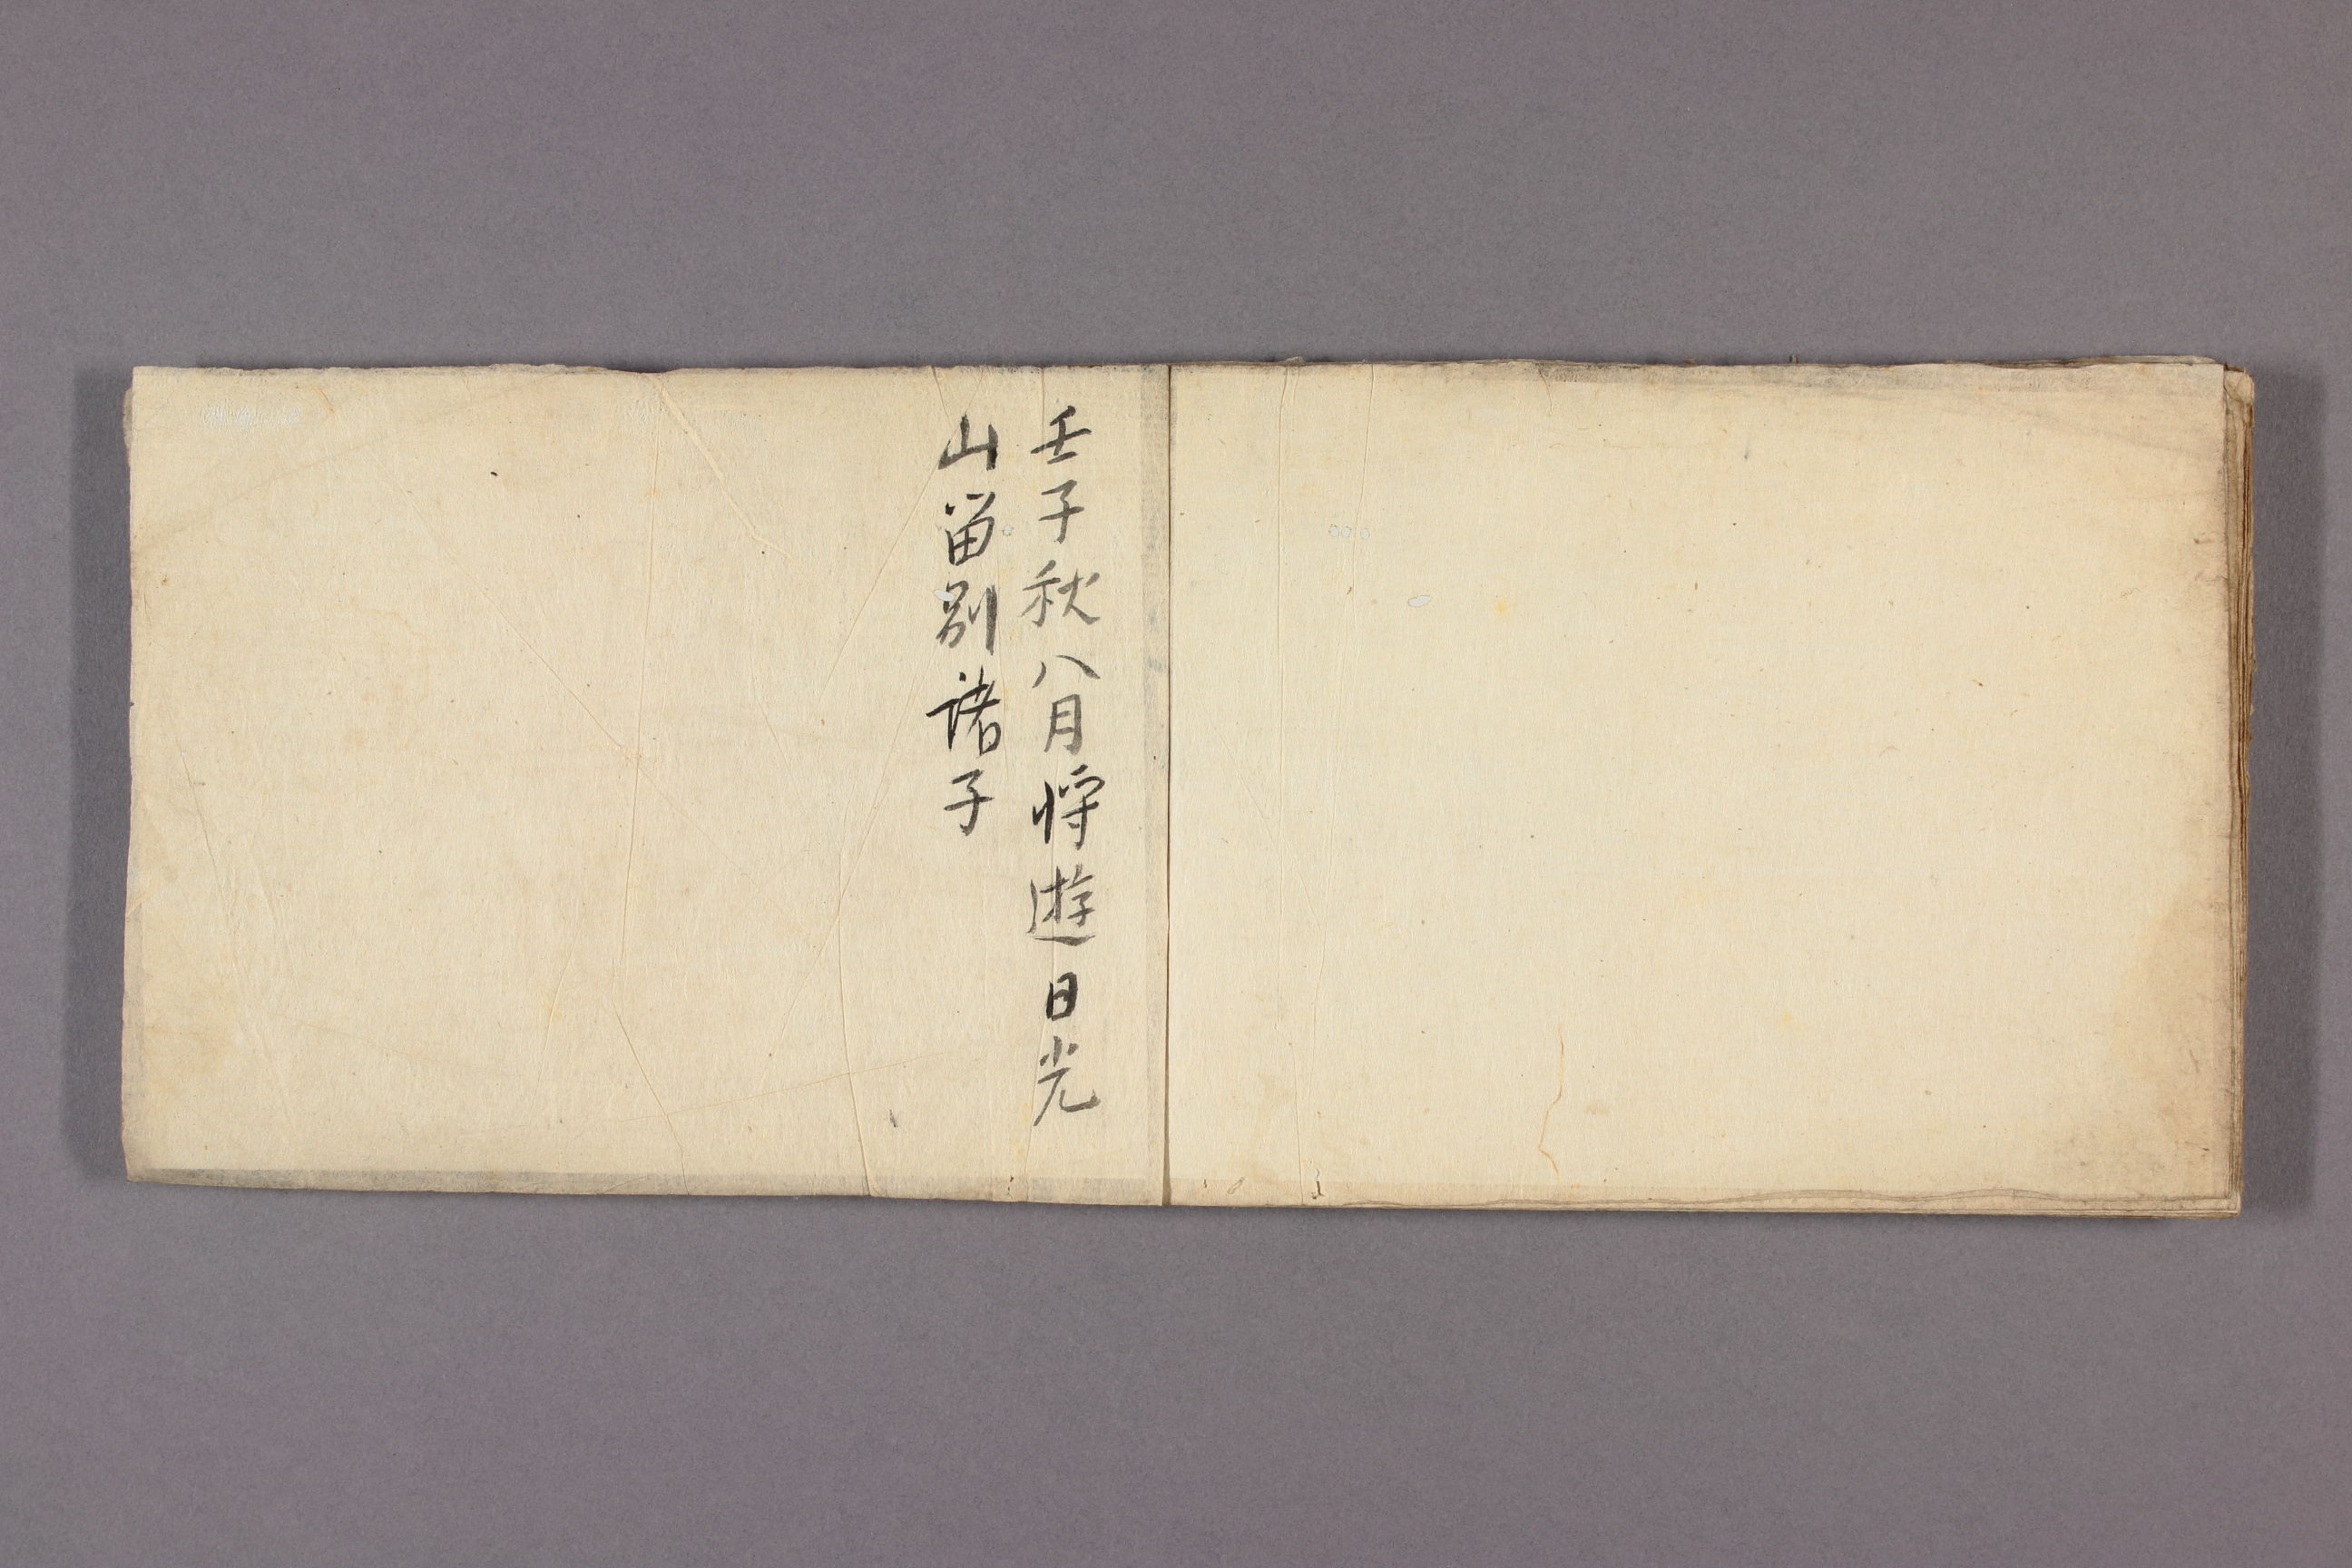 壬子秋八月将遊日光
山留別諸子